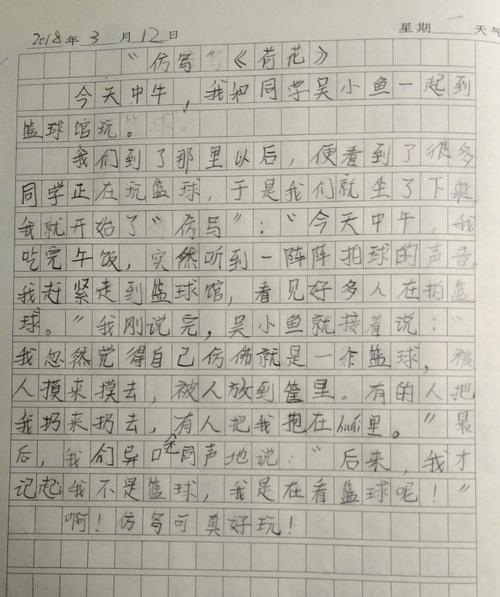 2018年3月12日 星期一 天气
“仿写”《荷花》
今天中午，我和同学吴小鱼一起到
篮球馆玩。
我们到了那里以后，便看到了很多
同学正在玩篮球，于是我们就坐了下来，
我就开始了“仿写”：“今天中午，我
吃完午饭，突然听到一阵阵拍球的声音，
我赶紧走到篮球馆，看见好多人在拍篮
球。”我刚说完，吴小鱼就接着说：“
我忽然觉得自己仿佛就是一个篮球，被
人摸来摸去，被人放到筐里。有的人把
我扔来扔去，还有人把我抱在huái里。”最
后，我们异口同声地说：“后来，我才
记起我不是篮球，我是在看篮球呢！”
啊！仿写可真好玩！